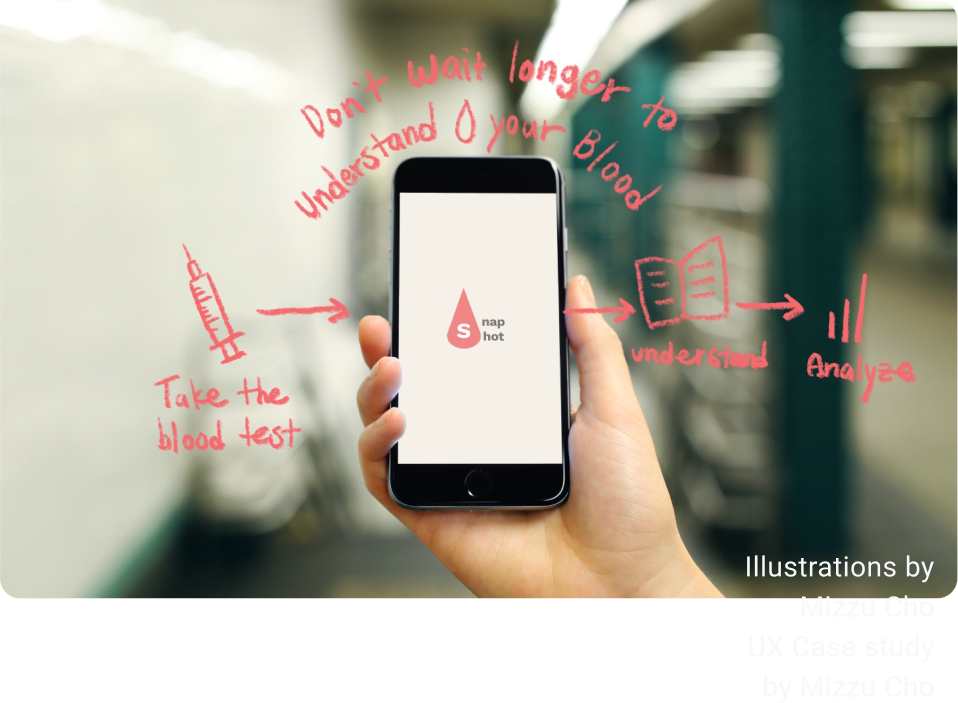 Don't wait longer to
understand your Blood
S nap
hot
Take the
blood test
understand
Analyze
Illustrations by
Mizzu Cho
UX Case study
by Mizzu Cho